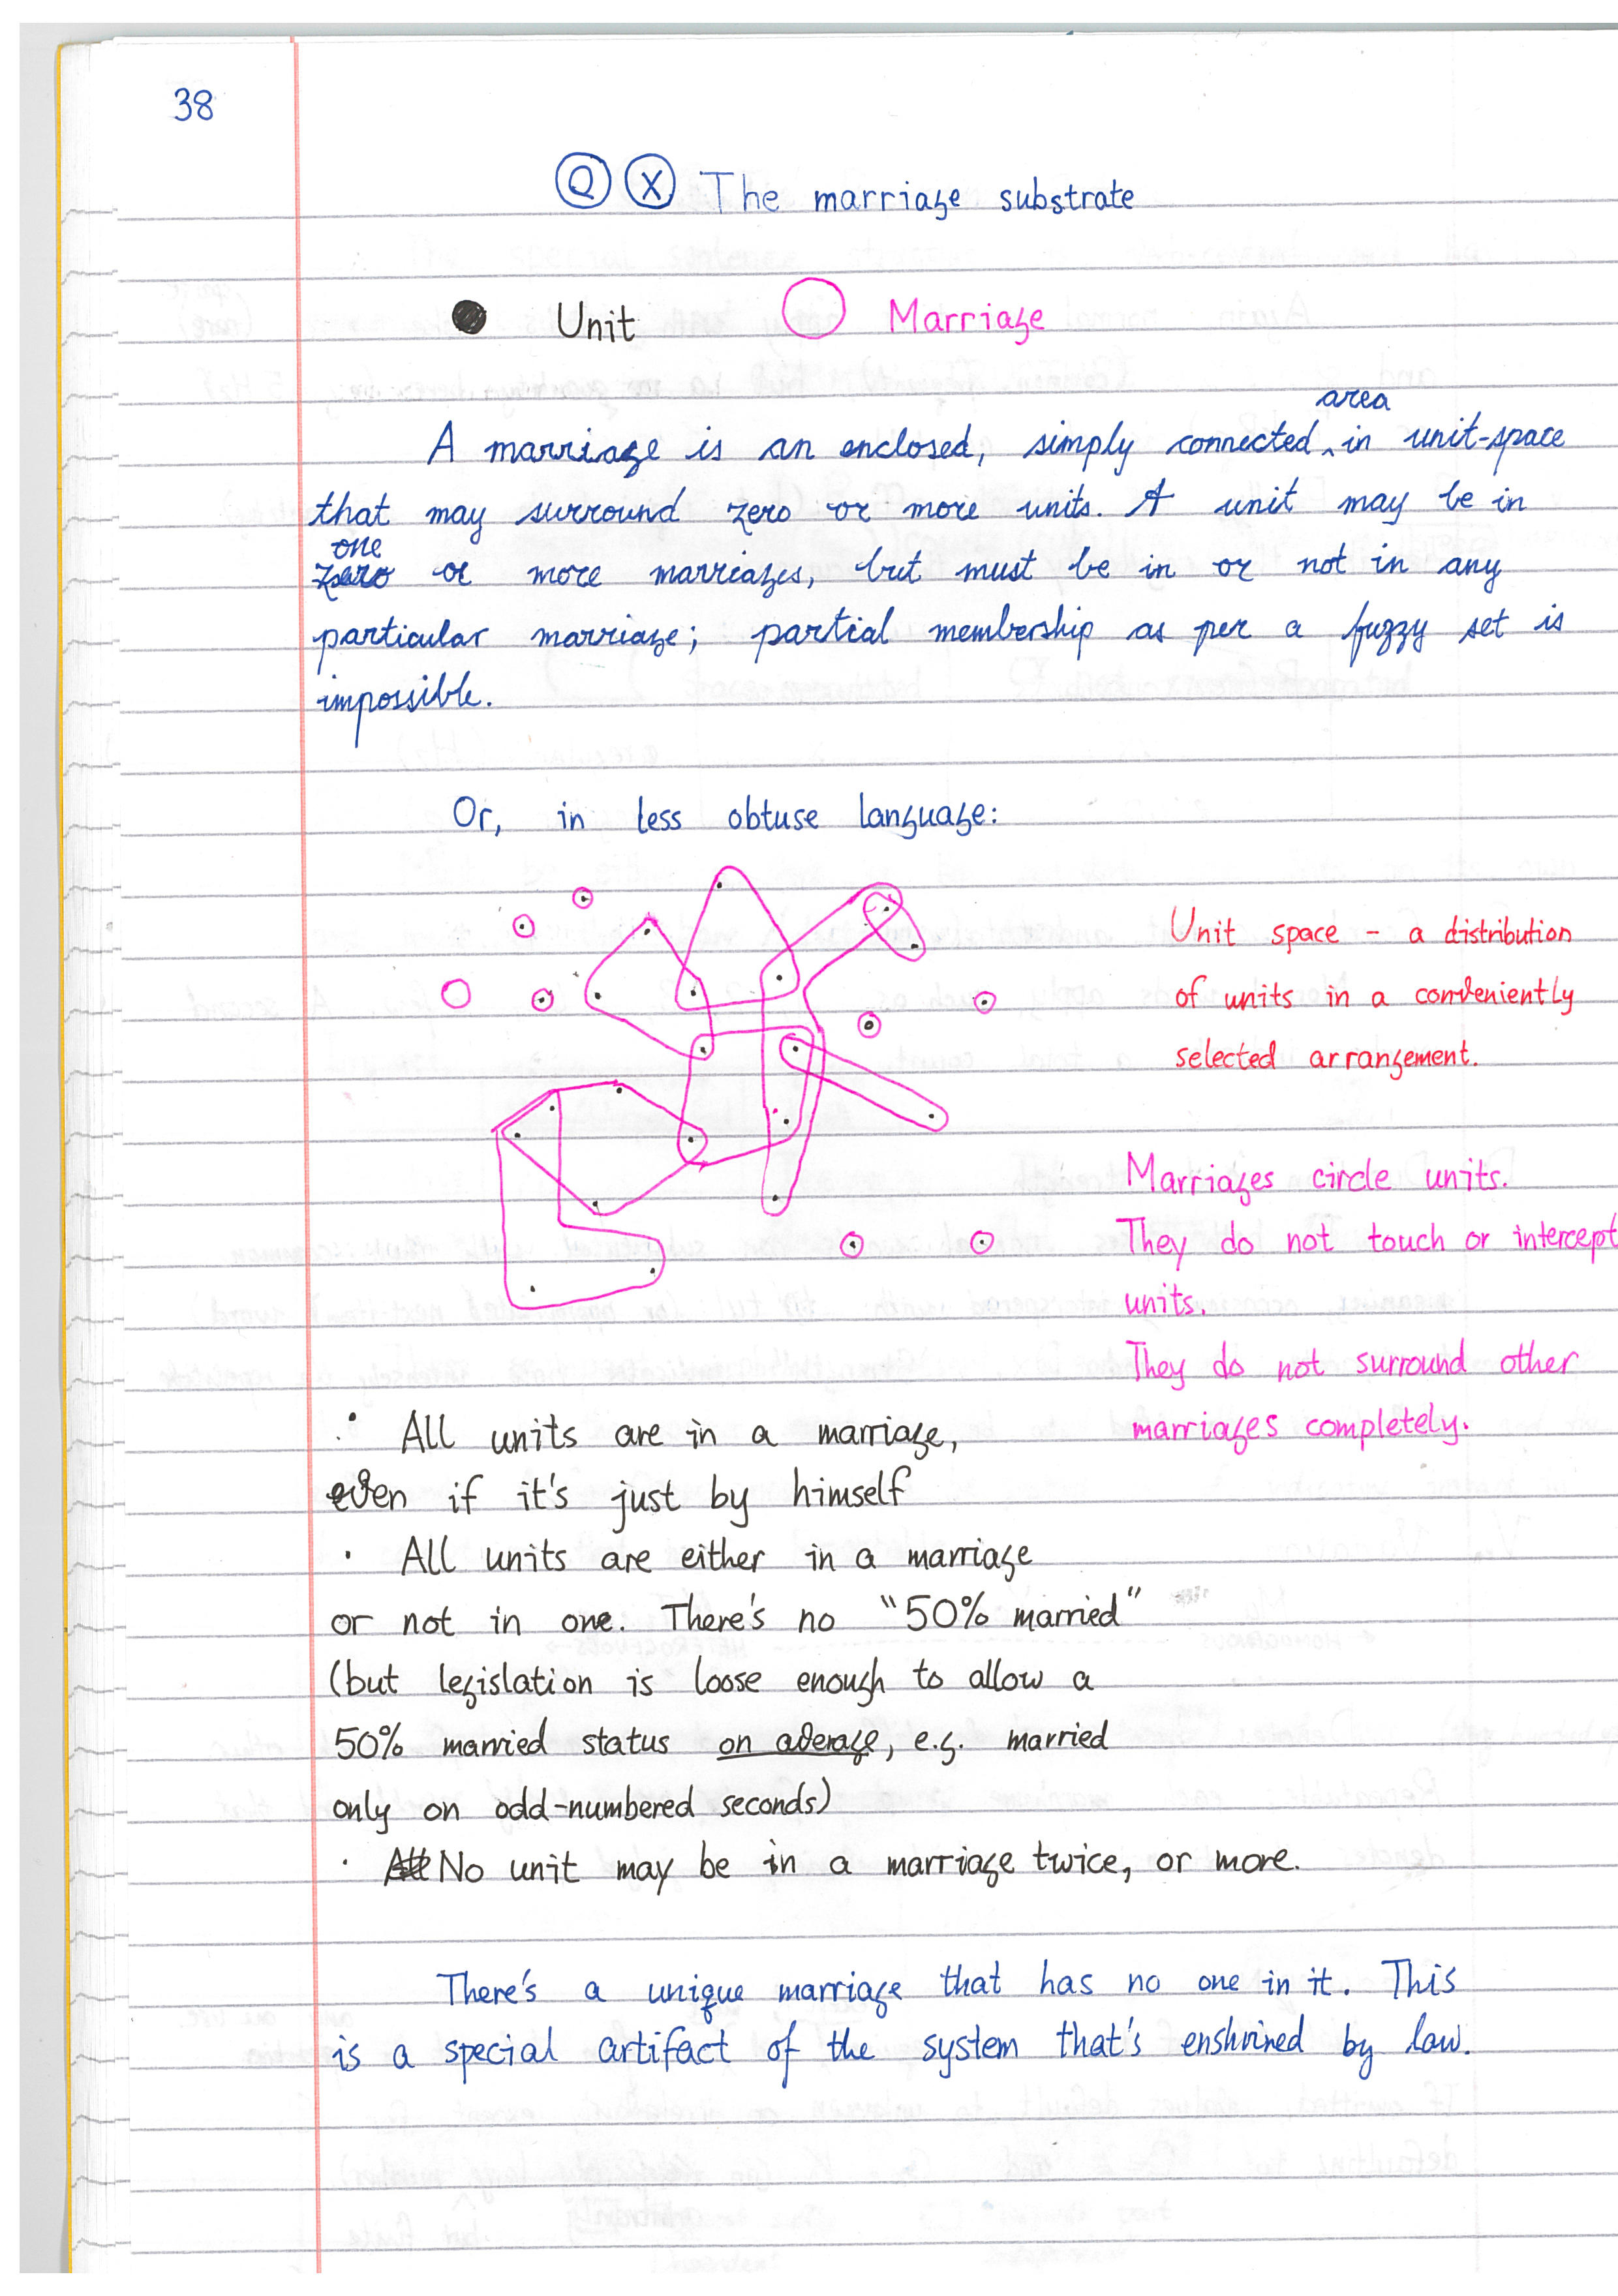 38
Q X The marriage substrate
Unit Marriage
area
A marriage is an enclosed, simply connected ^ in unit-space
that may surround zero or more units. A unit may be in
one
zero or more marriages, but must be in or not in any
particular marriage; partial membership as per a fuzzy set is
impossible.
Or, in less obtuse language:
Unit space - a distribution
of units in a conveniently
selected arrangement.
Marriages circle units.
They do not touch or intercept
units.
They do not surround other
marriages completely.
· All units are in a marriage,
even if it's just by himself
· All units are either in a marriage
or not in one. There's no "50% married"
(but legislation is loose enough to allow a
50% married status on average, e.g. married
only on odd-numbered seconds)
· All No unit may be in a marriage twice, or more.
There's a unique marriage that has no one in it. This
is a special artifact of the system that's enshrined by law.